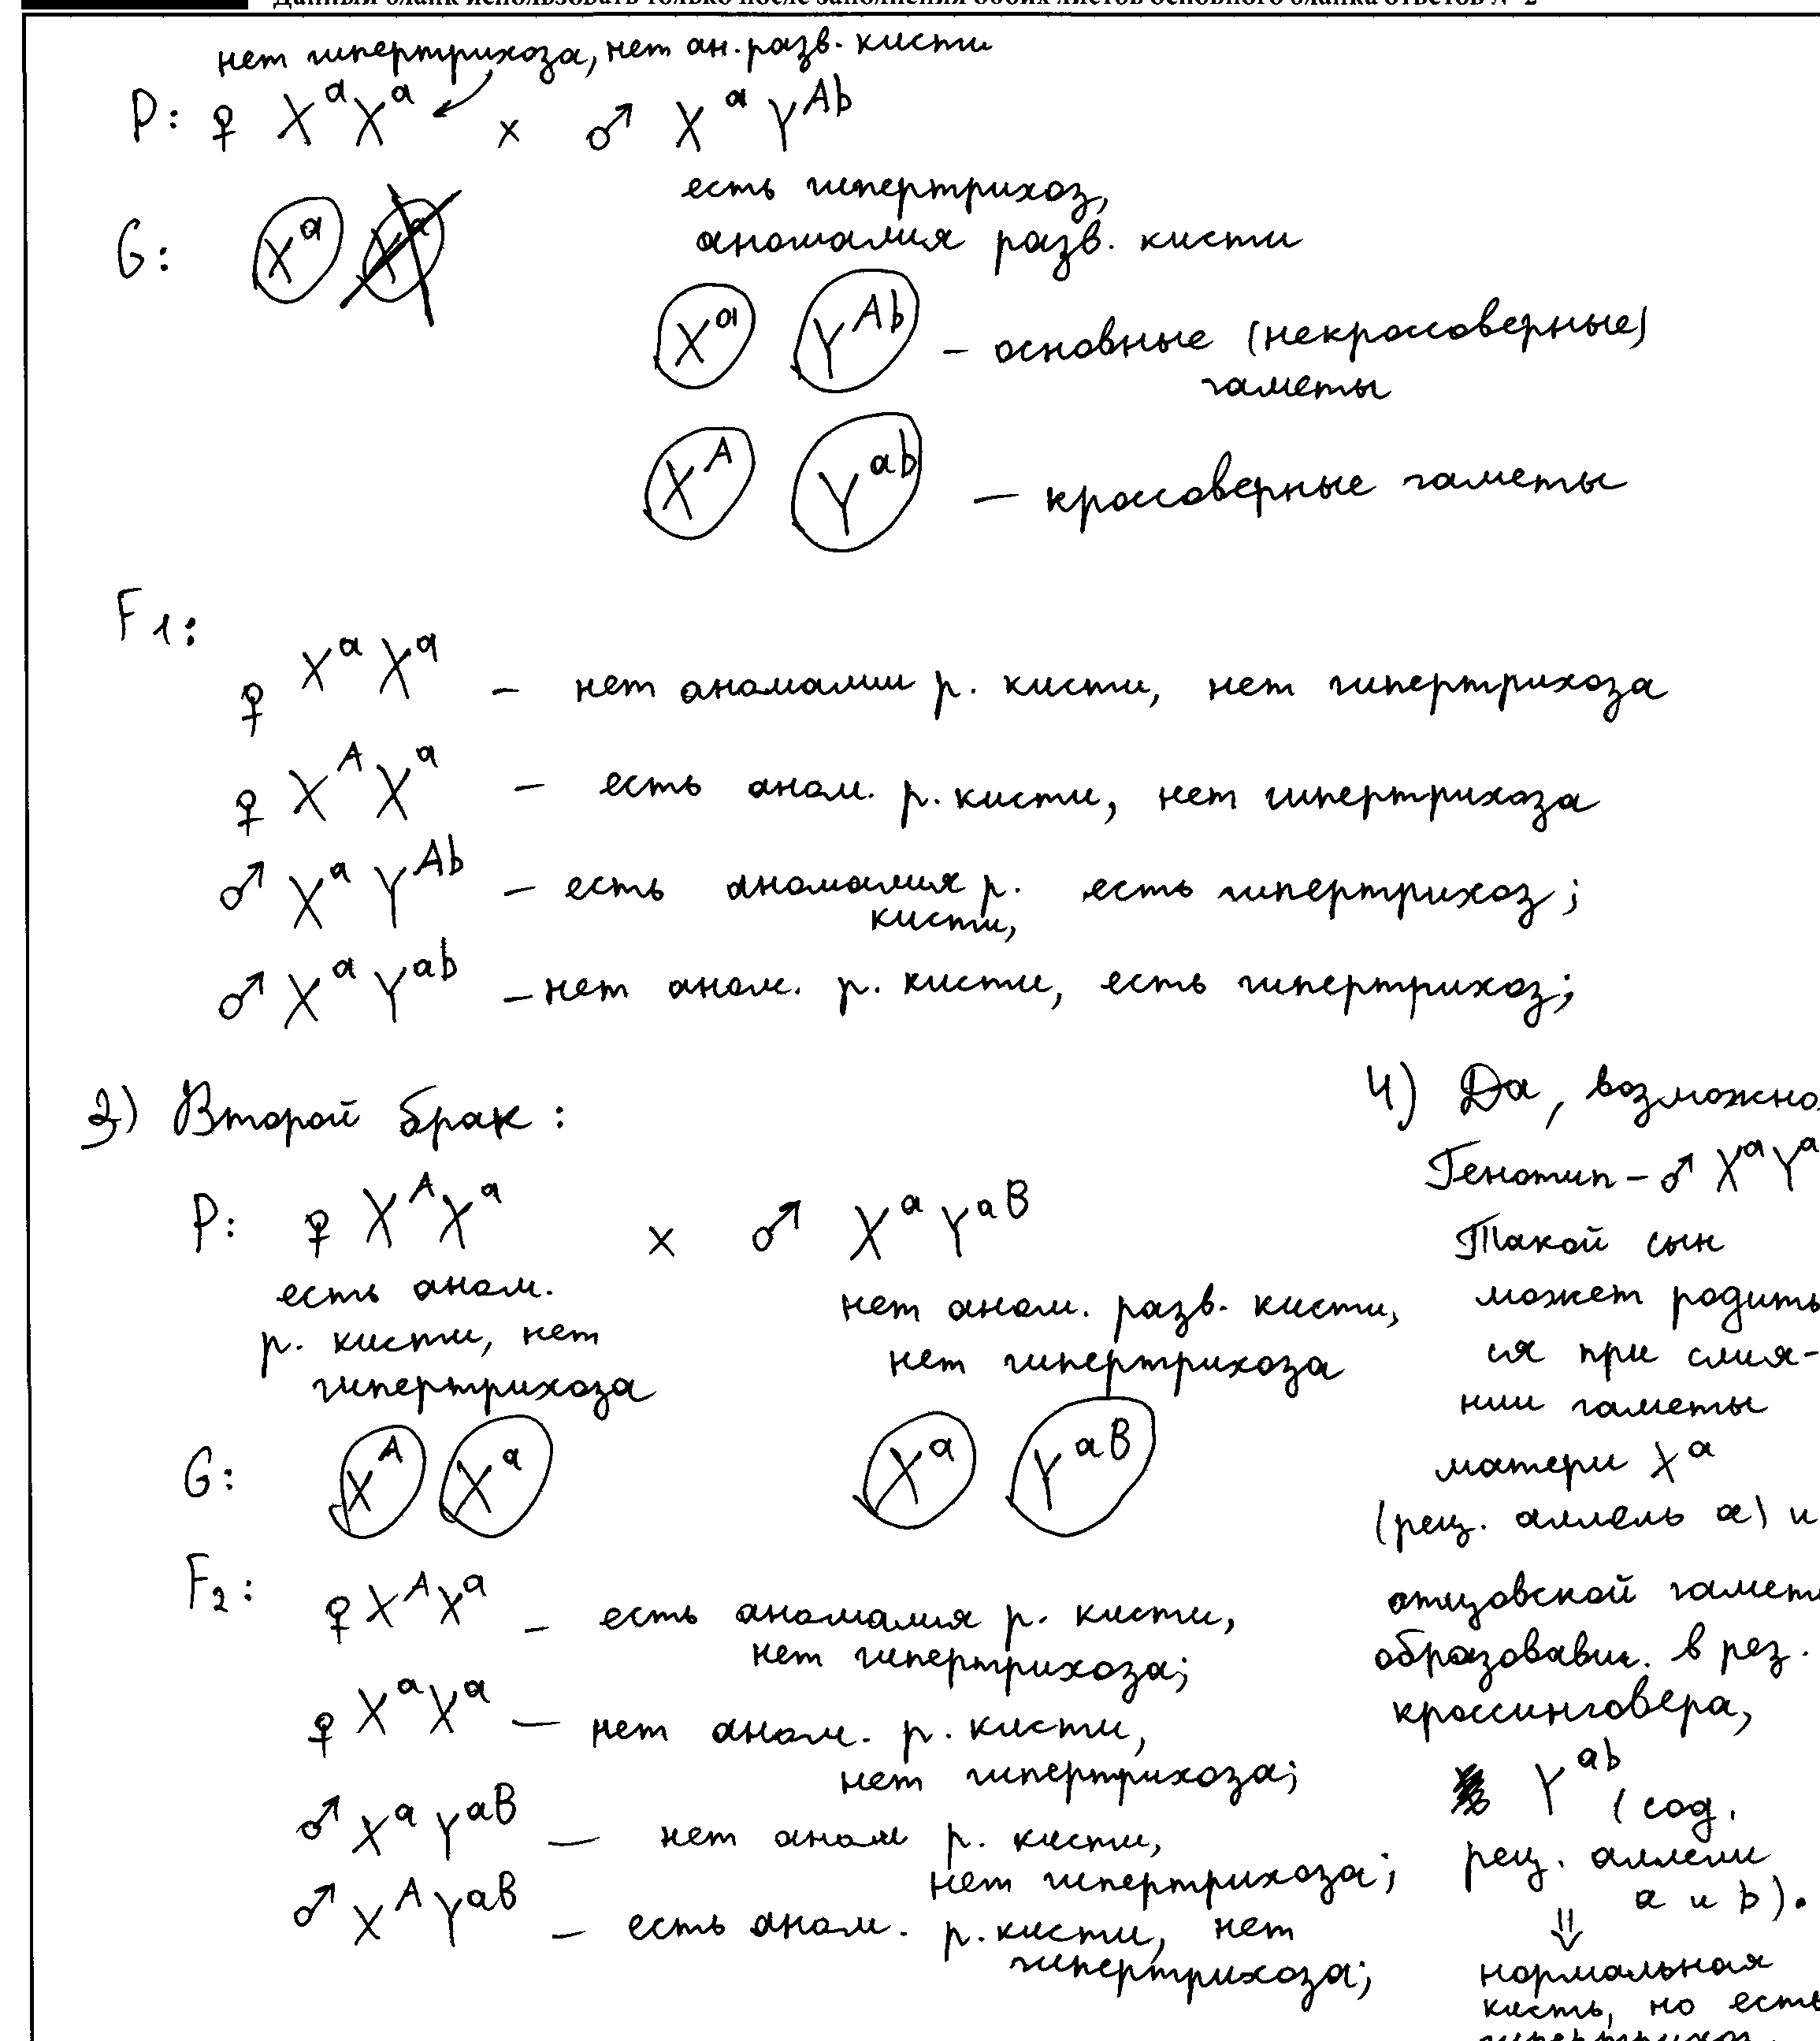 Данный бланк использовать только после заполнения обоих листов основного бланка ответов № 2
нет гипертрихоза, нет ан. разв. кисти
P: ♀ XᵃXᵃ x ♂ XᵃYᴬᵇ
есть гипертрихоз,
аномалия разв. кисти
G: Xᵃ
Xᵃ Yᴬᵇ – основные (некроссоверные)
гаметы
Xᴬ Yᵃᵇ – кроссоверные гаметы
F1:
♀ XᵃXᵃ – нет аномалии р. кисти, нет гипертрихоза
♀ XᴬXᵃ – есть аном. р. кисти, нет гипертрихоза
♂ XᵃYᴬᵇ – есть аномалия р. кисти, есть гипертрихоз;
♂ XᵃYᵃᵇ – нет аном. р. кисти, есть гипертрихоз;
3) Второй брак:
P: ♀ XᴬXᵃ x ♂ XᵃYᵃᴮ
есть аном.
р. кисти, нет
гипертрихоза
нет аном. разв. кисти,
нет гипертрихоза
G: Xᴬ Xᵃ Xᵃ Yᵃᴮ
F2: ♀ XᴬXᵃ – есть аномалия р. кисти,
нет гипертрихоза;
♀ XᵃXᵃ – нет аном. р. кисти,
нет гипертрихоза;
♂ XᵃYᵃᴮ – нет аном р. кисти,
нет гипертрихоза;
♂ XᴬYᵃᴮ – есть аном. р. кисти, нет
гипертрихоза;
4) Да, возможно
Генотип – ♂ XᵃYᵃ
Такой сын
может родить
ся при слия-
нии гаметы
матери Xᵃ
(рец. аллель а) и
отцовской гамет
образовавш. в рез.
кроссинговера,
Yᵃᵇ (сод.
рец. аллели
а и b).
⇓
нормальная
кисть, но есть
гипертрихоз.